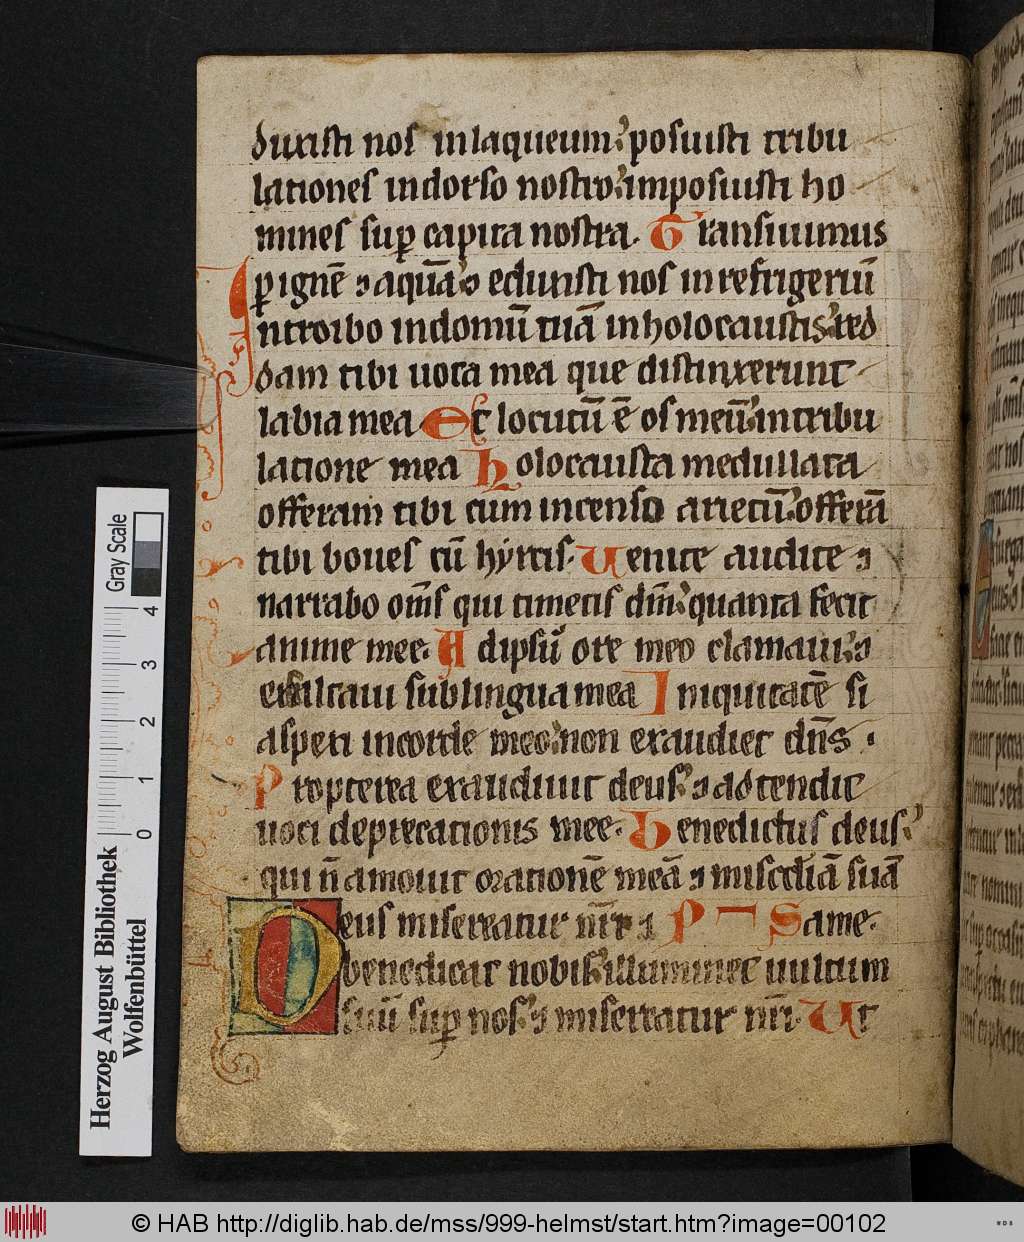 duxisti nos in laqueum. posuisti tribu
lationes in dorso nostro. imposuisti ho
mines sup capita nostra. Transiuimus
p ignē ⁊ aquā ⁊ eduxisti nos in refrigeriū
Introibo in domū tuā in holocaustis. red
dam tibi uota mea que distinxerunt
labia mea Et locutū ē os meū. in tribu
latione mea Holocausta medullata
offeram tibi cum incenso arietū. offerā
tibi boues cū hyrcis. Uenite audite ⁊
narrabo om̄s qui timetis dm̄. quanta fecit
anime mee. Ad ipsū ore meo clamaui. ⁊
exaltaui sub lingua mea Iniquitatē si
aspexi in corde meo. non exaudiet dn̄s.
Propterea exaudiuit deus. ⁊ adtendit
uoci deprecationis mee. Benedictus deus.
qui n̄ amouit orationē meā ⁊ misc̄diā suā
Deus misereatur nr̄i ⁊ P Same.
benedicat nobis. illuminet uultum
suū sup nos. ⁊ misereatur nr̄i. Ut
Gray Scale
0 1 2 3 4
Herzog August Bibliothek
Wolfenbüttel
© HAB http://diglib.hab.de/mss/999-helmst/start.htm?image=00102